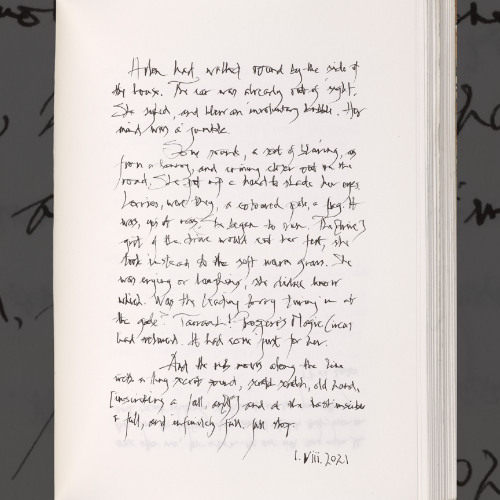 Helen had walked round by the side of
the house. The car was already out of sight.
She sighed, and blew an involuntary bubble. Her
mind was a jumble.
Some sounds, a sort of blaring, as
from a and coming closer out on the
road. She put up a hand to shade her eyes.
Lorries, were they, a coloured pole, a flag. It
was, was. She began to run. The
grit of the drive would cut her feet, she
took instead to the soft warm grass. She
was crying or laughing, she didn't know
which. Was the leading lorry turning in at
the gate? Prospero's Magic Circus
had returned. It had come just for her.
And the nib moves along the line
with a tiny secret sound, scratch scratch, old hand,
a full, and at the last
a full, and infinitely full, full stop.
1. viii. 2021